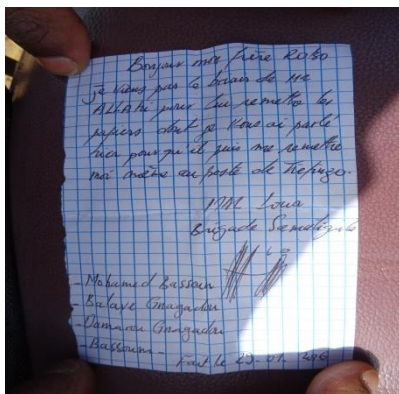 Bonjour mon frère Robo
je viens par le biais de Mr
ALLAhi pour lui remettre les
papiers dont je vous ai parlé
hier pour qu'il puis me remettre
moi même au poste de
MM Loua
Brigade
- Mohamed Bassoun
- Balaye Gnagadou
- Gnagadou
- Bassoum -
Fait le 29-01